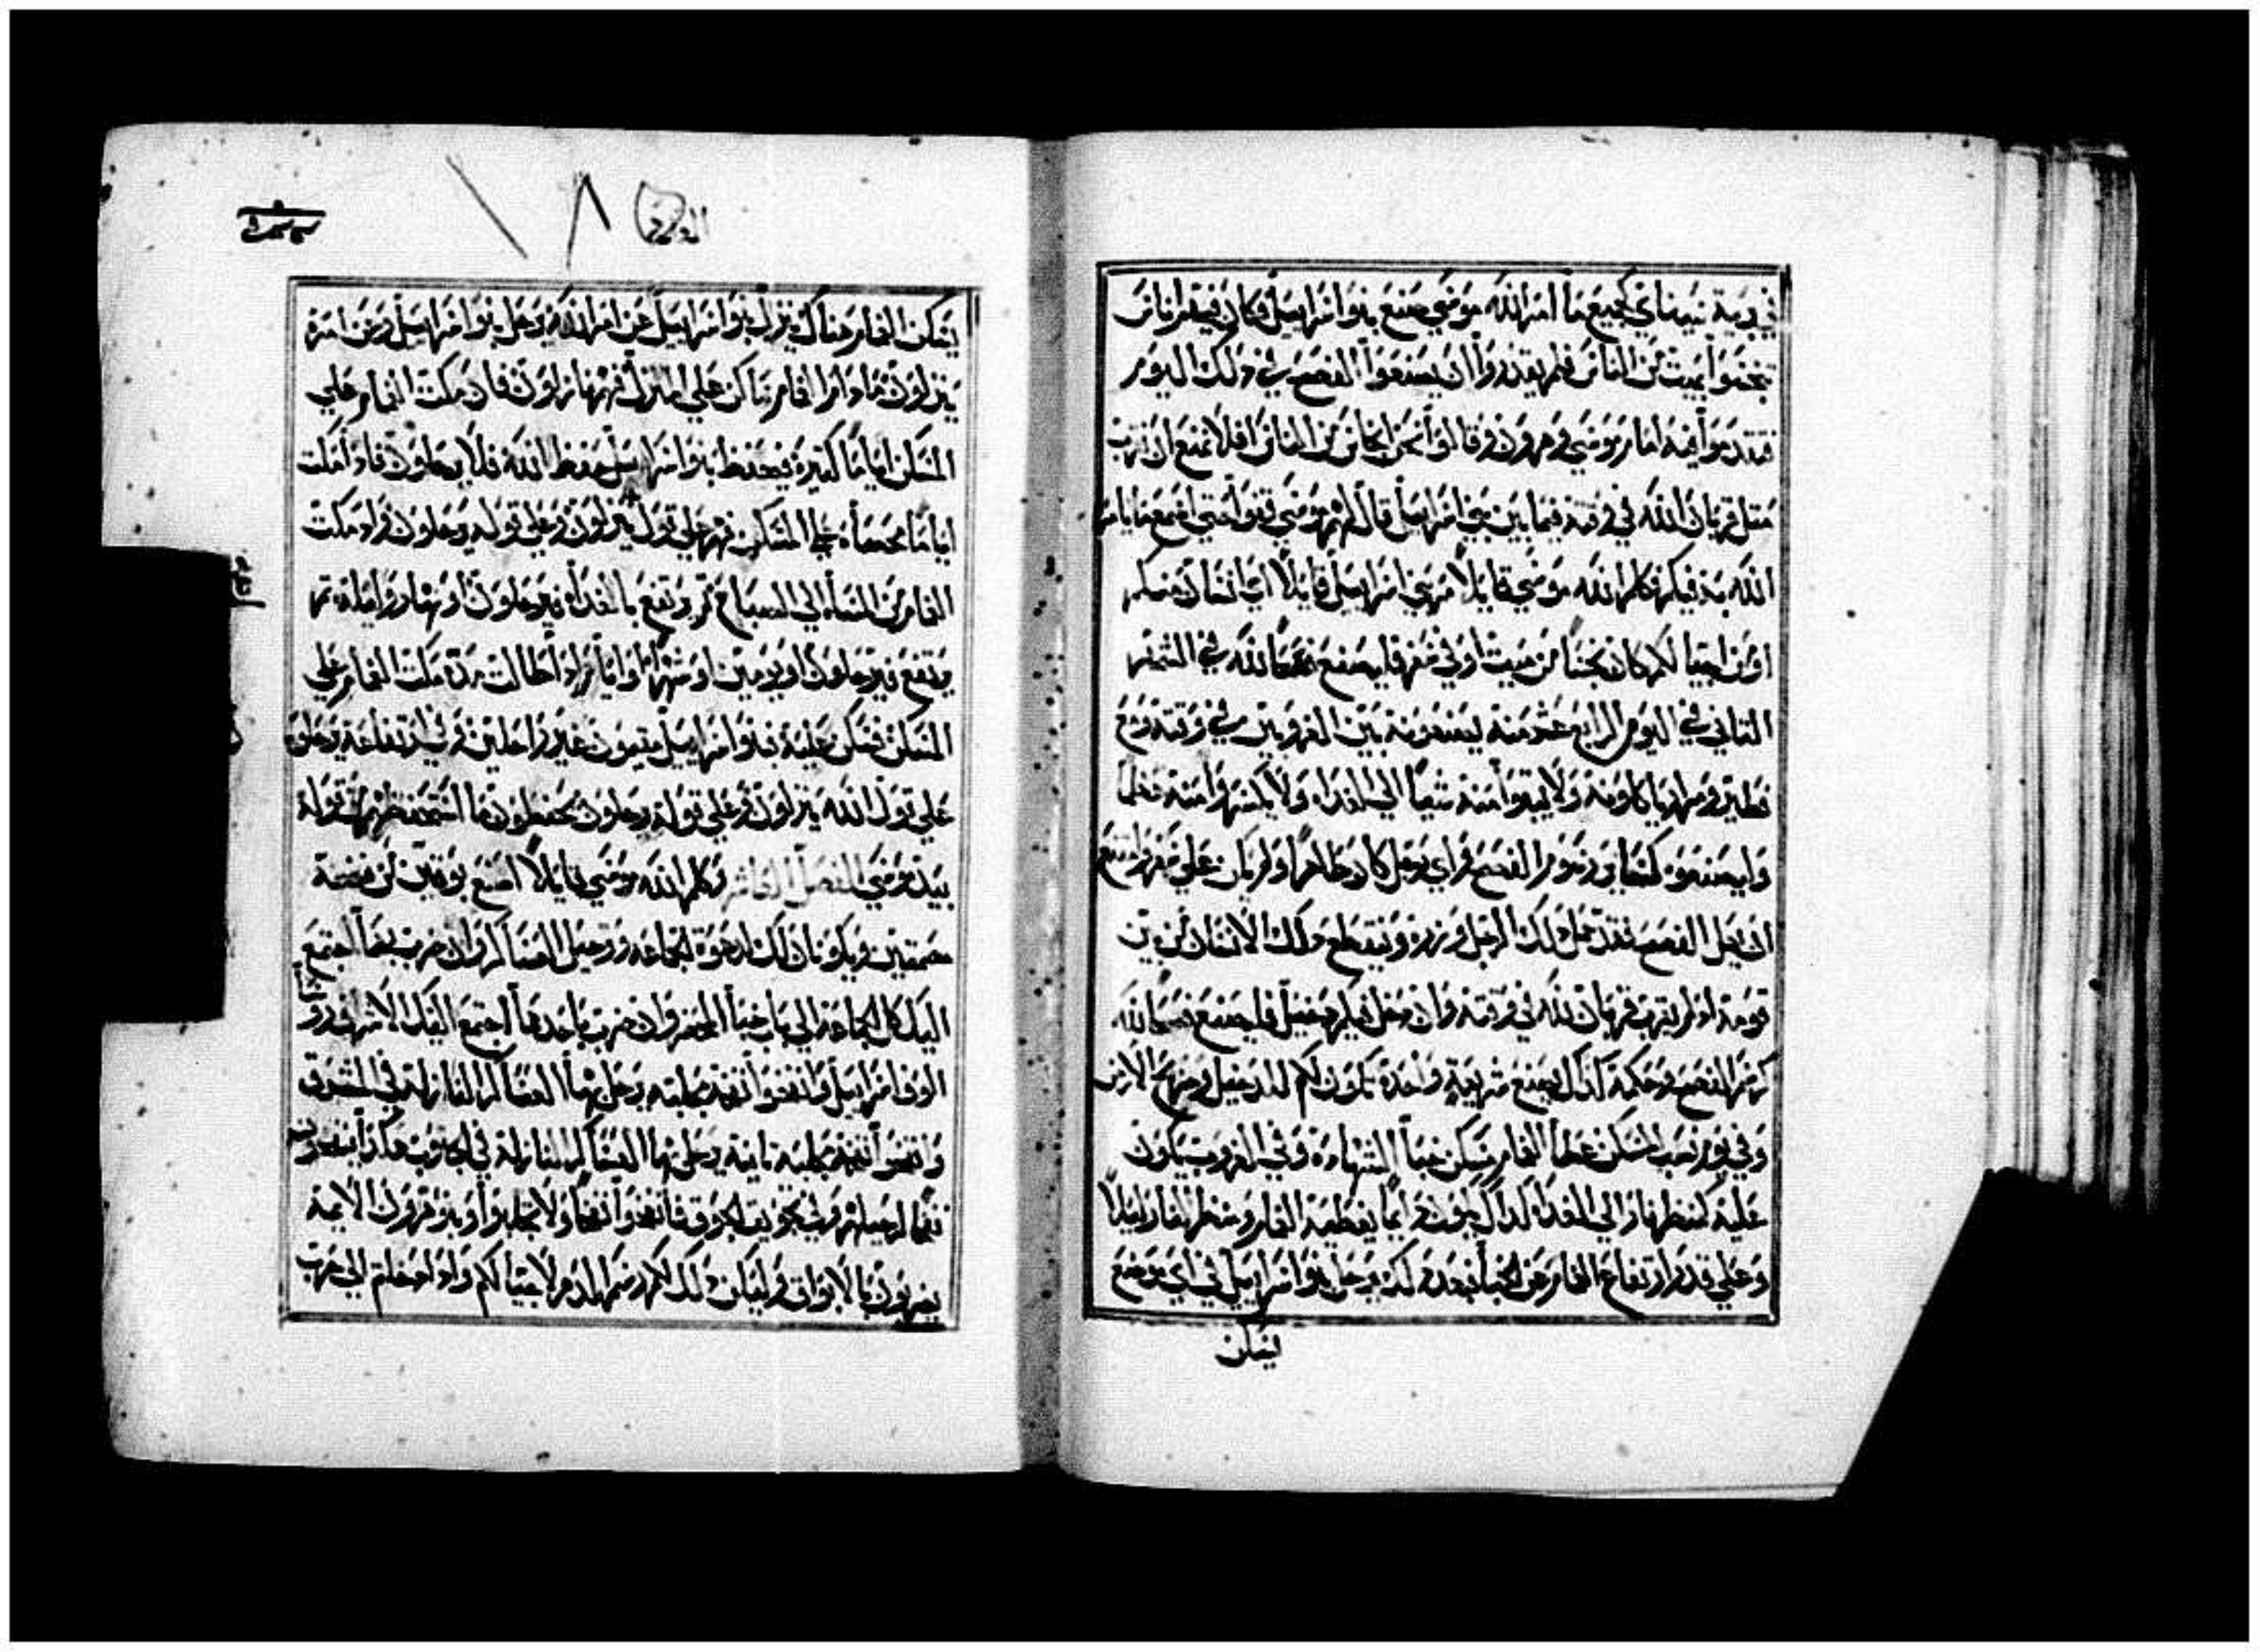 في برية سيناي كجميع ما امر الله موسي صنع بنوا اسراييل فكان فيهم اناس
تنجسوا بميت من الناس فلم يقدروا ان يصنعوا الفصح في ذلك اليوم
فتقدموا اليه امام موسي وهرون وقالوا نحن انجاس من الناس افلا نمنع ان نقرب
مثل قربان الله في وقته فيما بين بني اسراييل قال لهم موسي قفوا حتي اسمع ما يامر
الله به فيكم فكلم الله موسي قايلا مر بني اسراييل قايلا اي انسان منكم
او من اجيالكم كان نجسا من ميت او في سفر فليصنع فصحا لله في الشهر
الثاني في اليوم الرابع عشر منه يصنعونه بين الغروبين في وقته ومع
فطير ومرار ياكلونه ولا يبقوا منه شيا الي الغداه ولا يكسروا منه عظما
وليصنعوه كسنة ورسوم الفصح واي رجل كان طاهرا ولم يكن علي سفر وامتنع
ان يعمل الفصح فقد حمل ذلك الرجل وزره وينقطع ذلك الانسان من بين
قومه اذ لم يقرب قربان الله في وقته وان دخل اليكم دخيل فليصنع فصحا لله
كرسم الفصح وحكمه كذلك يصنع شريعة واحدة تكون لكم للدخيل وصريح الارض
وفي يوم نصب المسكن غطا الغمام مسكن خبا الشهادة وفي الغروب يكون
عليه كمنظر نار الي الغداه كذلك يكون دايما يغطيه الغمام ومنظر النار ليلا
وعلي قدر ارتفاع الغمام عن الخبا بعد ذلك يرحل بنوا اسراييل في اي موضع
يسكن
يسكن الغمام هناك ينزل بنوا اسراييل عن امر الله يرحل بنوا اسراييل وعن امره
ينزلون ما دام الغمام ساكن علي المنزل فهم نازلون فان مكث الغمام علي
المسكن اياما كثيرة فيحفظ بنوا اسراييل حفظ الله فلا يرحلون فاذا مكث
اياما محصاه علي المسكن فهم علي قول ينزلون وعلي قوله يرحلون واذا مكث
الغمام من المسا الي الصباح ثم يرتفع بالغداه فيرحلون او نهار وليله ثم
يرتفع فيرحلون او يومين او شهرا او اياما واذا طالت مدة مكث الغمام علي
المسكن فسكن عليه فبنوا اسراييل مقيمون غير راحلين وفي ارتفاعه يرحلون
علي قول الله ينزلون وعلي قوله يرحلون يحفظون ما استحفظهم الله بقوله
بيد موسي الفصل العاشر وكلم الله موسي قايلا اصنع بوقين من فضة
مصمتين ويكونان لك لدعوة الجماعه ورحيل العساكر وان ضرب بهما اجتمع
اليك كل الجماعة الي باب خبا المحضر وان ضرب باحدهما اجتمع اليك الاشراف روسا
الوف اسراييل وانفخوا نفخة بجلبه يرحل بها العساكر النازلة في المشرق
وانفخوا نفخة بجلبه ثانية يرحل بها العساكر النازلة في الجنوب هكذا ينفخون
نفخا لرحيلهم وفي تجويق الجوق فانفخوا نفخا ولا تجلبوا وبنو هرون الايمه
يضربون بالابواق وليكن ذلك لكم رسم الدهر لاجيالكم واذا دخلتم الي حرب